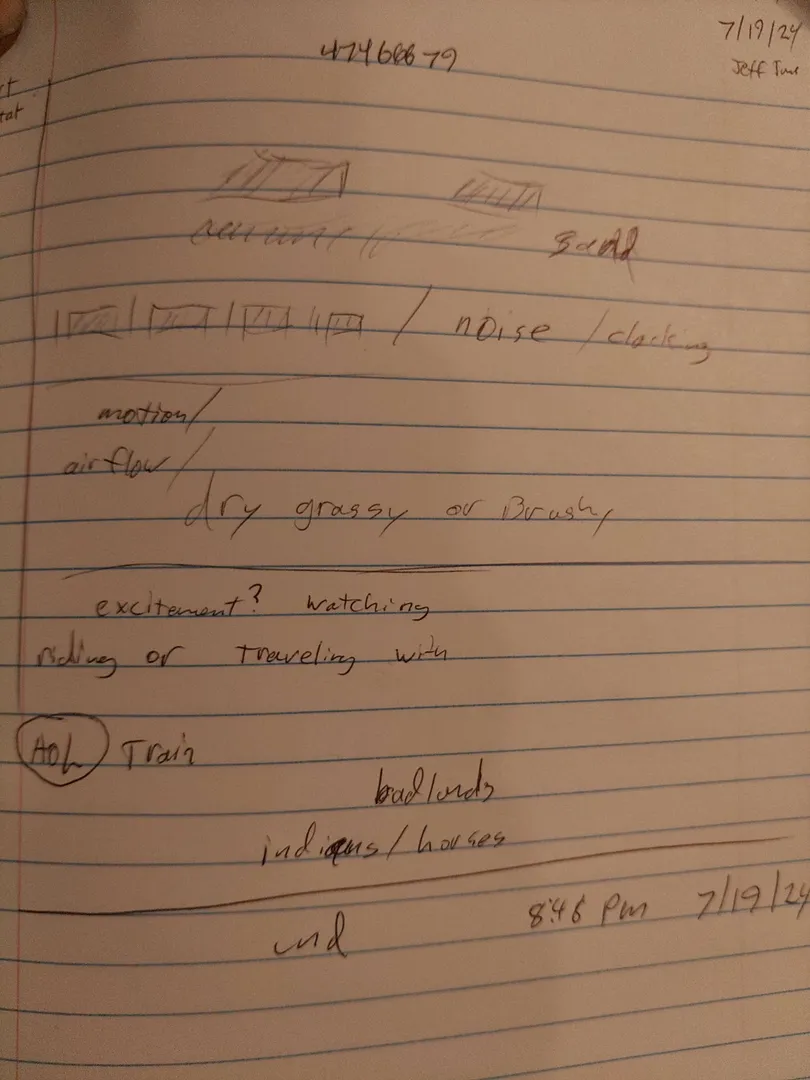 7/19/24
47466679
Jeff
sand
/ noise / clacking
motion/
airflow/
dry grassy or Brushy
excitement? watching
riding or traveling with
AOL Train
badlands
indians / horses
8:46 pm 7/19/24
end